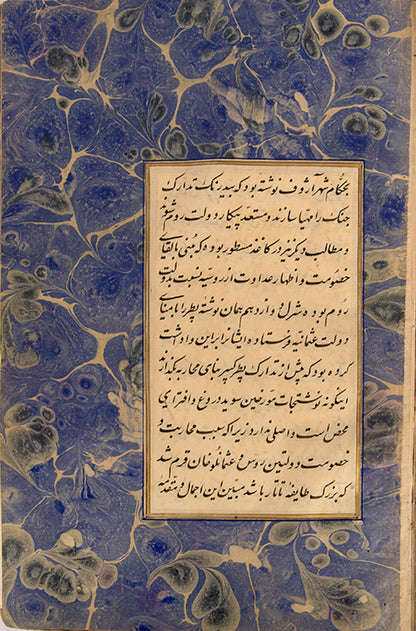 بحکام شهر آزوف نوشته بود که بیدرنک تدارک
جنک را مهیا سازند و مستعد پیکار دولت روم شوند
و مطالب دیگر نیز در کاغذ مسطور بوده که مبنی بالقای
خصومت و اظهار عداوت از روسیه نسبت بدولت
روم بوده شرل دوازدهم همان نوشته پطر را بامنای
دولت عثمانیه فرستاده ایشانرا براین واداشت
کرده بود که پیش از تدارک پطر کبیر بنای محاربه گذارند
اینگونه نوشتجات مورخین سوید دروغ و افترای
محض است و اصلی ندارد زیرا که سبب محاربت و
خصومت دولتین روس و عثمانلو خان قرم شد
که بزرک طایفه تاتار باشد مبین این اجمال و مقصد